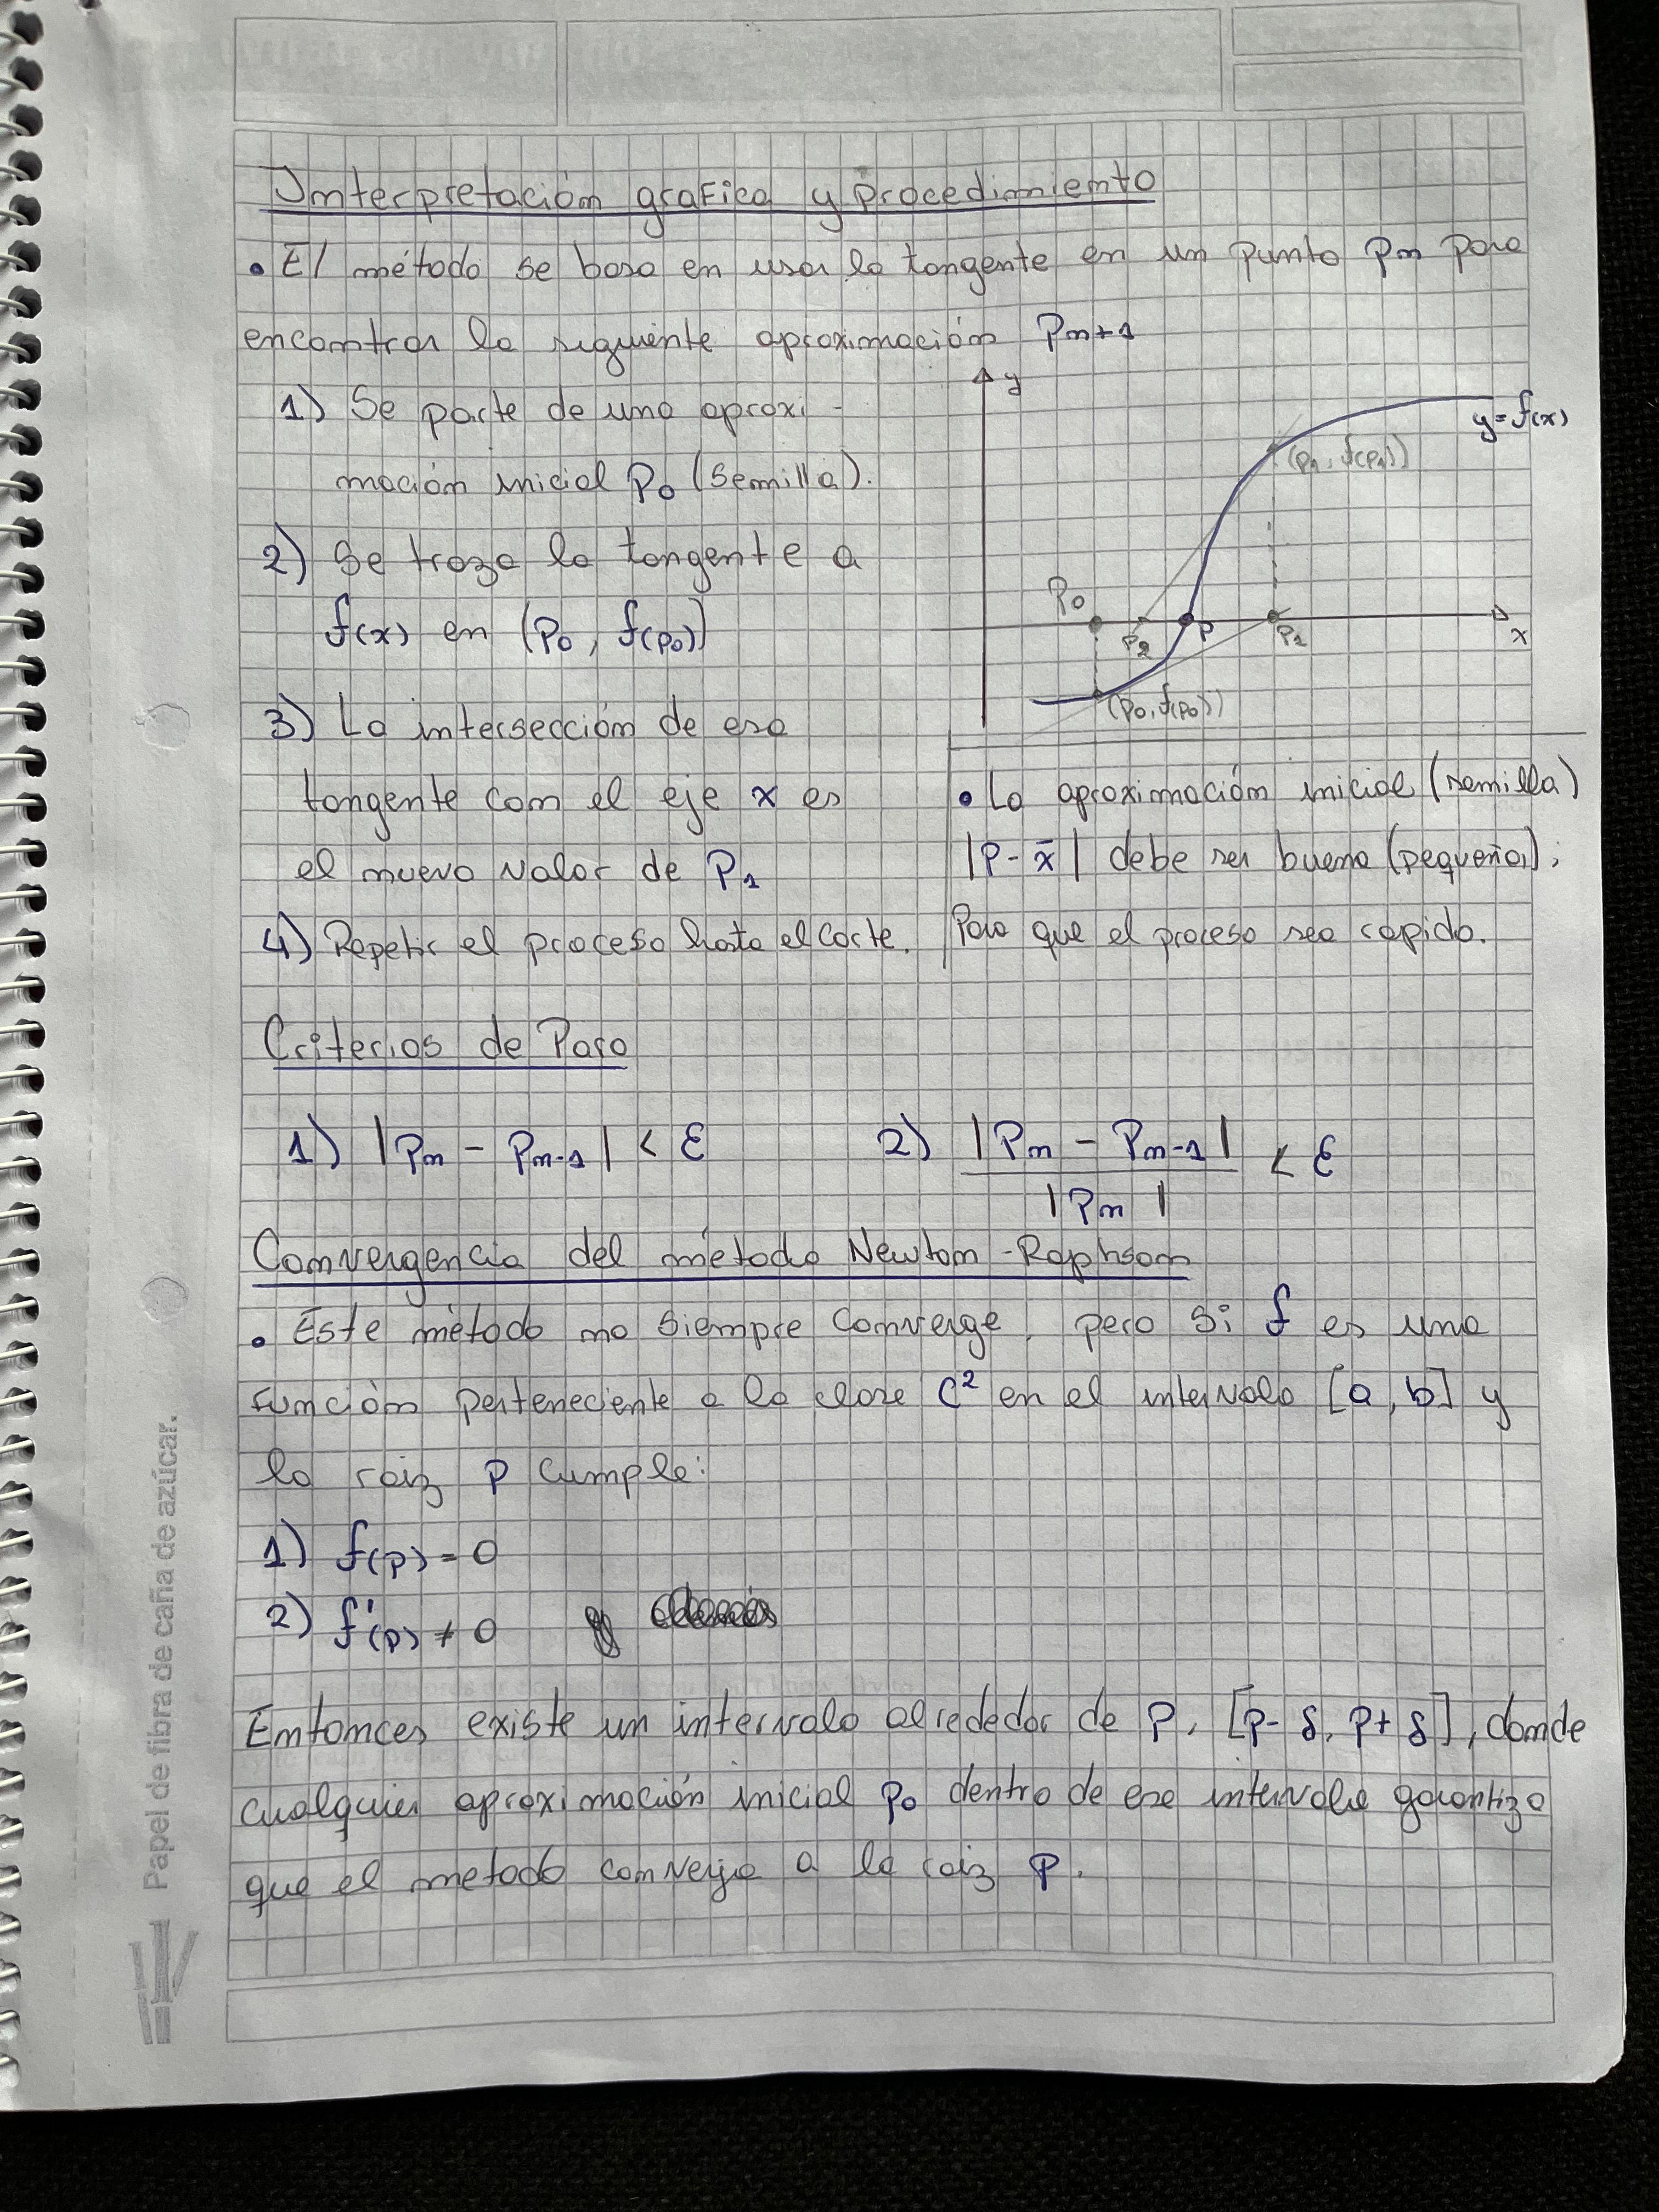 Interpretación grafica y Procedimiento
• El método se basa en usar la tangente en un punto Pn para
encontrar la siguiente aproximación Pn+1
1) Se parte de una aproxi-
mación inicial P0 (Semilla).
2) Se traza la tangente a
f(x) en (P0, f(P0))
3) La intersección de esa
tangente con el eje x es
el nuevo valor de P1
4) Repetir el proceso hasta el corte.
y
y=f(x)
(P1, f(P1))
P0
P2
P
P1
x
(P0, f(P0))
• La aproximación inicial (semilla)
|P-x̄| debe ser buena (pequeña);
Para que el proceso sea rapido.
Criterios de Paro
1) |Pn - Pn-1| < ε
2) |Pn - Pn-1| / |Pn| < ε
Convergencia del método Newton-Raphson
• Este método no siempre converge, pero si f es una
función perteneciente a la clase C² en el intervalo [a, b] y
la raiz P cumple:
1) f(p) = 0
2) f'(p) ≠ 0
Entonces existe un intervalo alrededor de P, [p-δ, p+δ], donde
cualquier aproximación inicial P0 dentro de ese intervalo garantiza
que el metodo converja a la raiz P.
Papel de fibra de caña de azúcar.